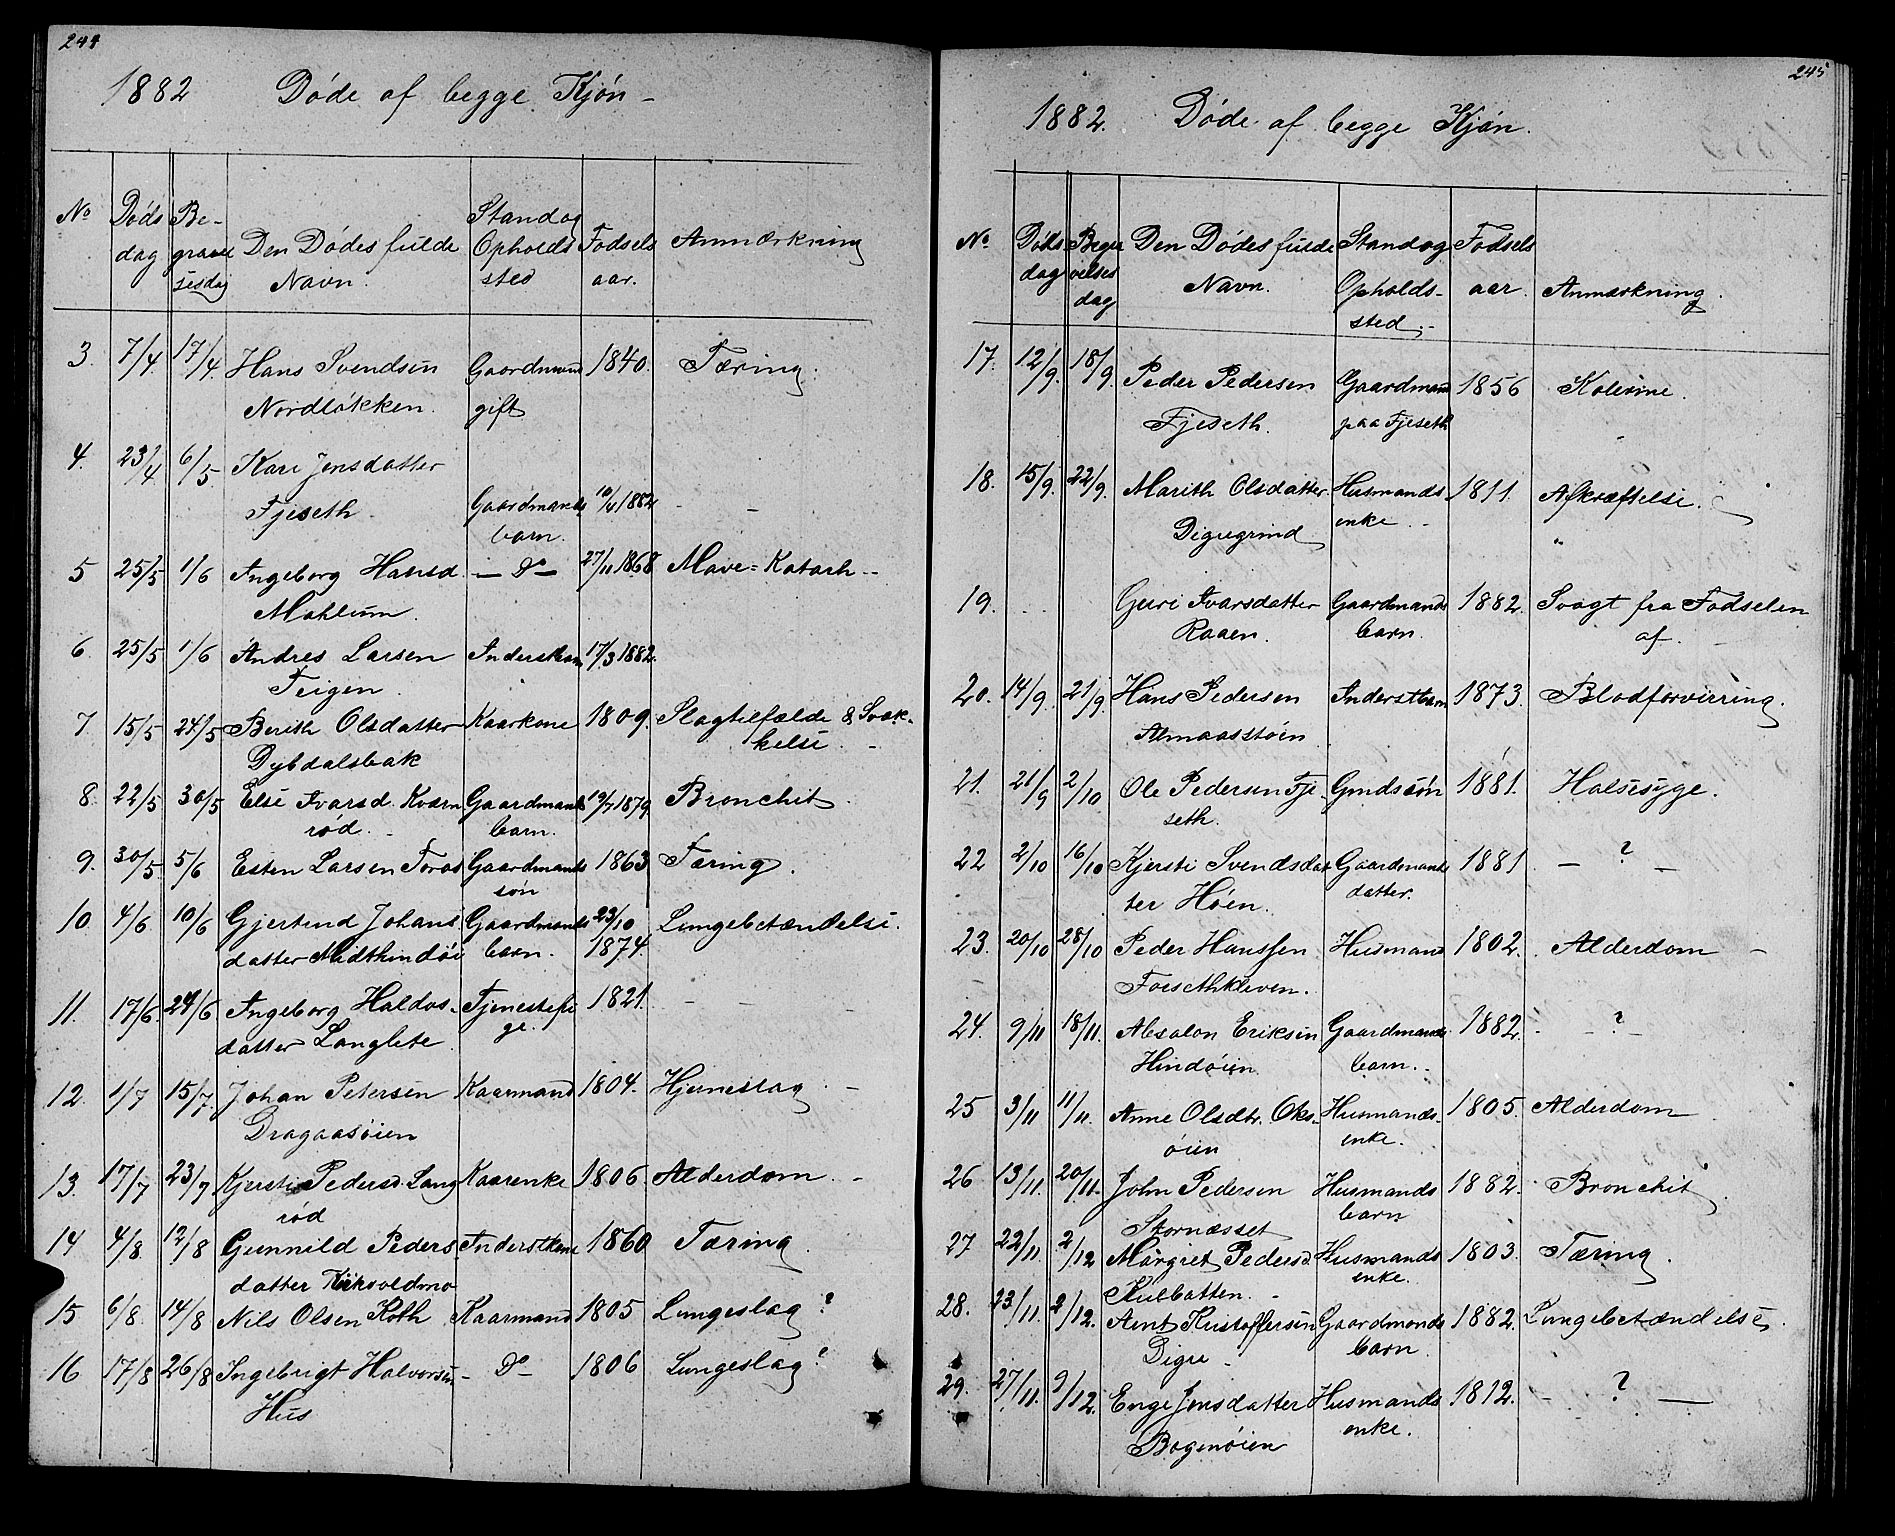 244
1882 Døde af begge Kjøn -
No Døds dag Be- gravel sesdag Den Dødes fulde Navn. Stand og Opholds sted Fødsels aar. Anmærkning
3. 7/4. 17/4. Hans Svendsen Gaardmand 1840. Tæring.
Nordløkken. gift
4. 23/4 6/5 Kari Jensdatter
Fjeseth. Gaardmands 10/4 1882 - -
barn.
5 25/5 1/6 Ingeborg Hansd. — Do — 27/11 1868 Mave-Katarh -
Mohlum.
6 25/5 1/6 Andres Larsen Inderstbarn 17/3 1882.
Teigen.
7. 15/5 24/5 Berith Olsdatter Kaarkone 1809. Slagtilfælde & Svæk-
Dybdalsbak kelse. -
8. 22/5 30/5 Else Ivarsd. Kværn Gaardmands 19/7 1879. Bronchit.
rød. - barn.
9. 30/5 5/6 Esten Larsen Toras Gaardmands 1863 Tæring.
søn
10. 4/6 10/6 Gjertrud Johans Gaardmands 23/10 Lungebetændelse.
datter Midthindøi barn. 1874.
11. 17/6. 24/6 Ingeborg Haldos- Tjenestepi 1821. - -
datter Langlete ge.
12. 1/7 15/7 Johan Petersen Kaarmand 1804. Hjerneslag. -
Dragaasøien
13. 17/7 23/7 Kjersti Pedersd. Lang Kaarenke 1806. Alderdom. -
rød
14 4/8 12/8 Gunnild Peders Inderstkone 1860 Tæring.
datter Kirkvoldmo
15 6/8. 14/8 Nils Olsen Koth Kaarmand 1805 Lungeslag?
16 17/8 26/8 Ingebrigt Halvorsen - Do - 1806 Lungeslag?
Hus
245
1882. Døde af begge Kjøn.
No. Døds dag Begra velses dag Den Dødes fulde Navn. Stand og Opholds- sted.- Fødsels aar. Anmærkning.
17. 12/9. 18/9. Peder Pedersen Gaardmand 1856 Kolerine.
Fjeseth. paa Fjeseth
18. 15/9. 22/9. Marith Olsdatter Husmands 1811. Afkræftelse.
Digregrind enke. - "
19. .. Guri Ivarsdatter Gaardmands 1882. Svagt fra Fødselen
Raaen. barn. af.
20. 14/9. 21/9. Hans Pedersen Inderstbarn 1873. Blodforvirring.
Almaasstøen
21. 21/9 2/10 Ole Pedersen Fje- Gmdssøn 1881. Halsesyge.
seth.
22 2/10 16/10 Kjersti Svendsdat Gaardmands 1881 — ? —
ter Høien. datter.
23. 20/10 28/10 Peder Hanssen Husmand 1802. Alderdom -
Forsethkleven.
24. 9/11 18/11. Absalon Eriksen Gaardmands 1882. - ? -
Hindøien. barn. -
25 3/11 11/11. Anne Olsdtr. Oks- Husmands- 1805. Alderdom
øien enke.
26 13/11. 20/11. John Pedersen Husmands 1882. Bronchit.
Stornæsset barn
27 22/11. 2/12 Margret Pedersd Husmands 1803. Tæring.
Kulbatten. - enke.
28. 23/11. 2/12. Arnt Kristoffersen Gaardmands 1882. Lungebetændelse.
Digre - barn.
29. 27/11. 9/12. Enge Jensdatter Husmands 1812. - ? —
Bogenøien enke.